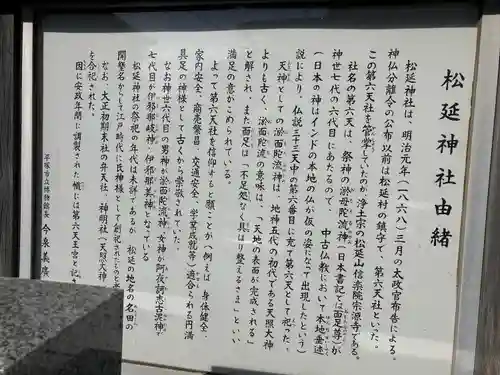 松延神社由緒
松延神社は、明治元年（一八六八）三月の太政官布告による。
神仏分離令の公布以前は松延村の鎮守で、第六天社といった。
この第六天社を管掌していたのが浄土宗の松延山信楽院宗源寺である。
社名の第六天は、祭神の淤母陀流神（日本書記では面足尊）が
神世七代の六代目にあたるので、中古仏教において本地垂迹
（日本の神はインドの本地の仏が仮の姿になって出現したという）
説により、仏説三十三天中の第六番目に充て第六天として祀った。
天神としての淤面陀流神は、地神五代の初代である天照大神
よりも古く、淤面陀流の意味は、「天地の表面が完成される」
と解され、また面足は「不足処なく具はり整えるさま」といい
満足の意がこめられている。
よって第六天社を信仰すると願ごとが（例えば、身体健全・
家内安全・商売繁昌・交通安全・学業成就等）適合られる円満
具足の神様として古くから崇敬されていた。
なお神世六代目の男神が淤面陀流神、女神が阿夜訶志古泥神、
七代目が伊邪那岐神、伊邪那美神となっている。
松延神社の祭祀の年代は未詳であるが、松延の地名の名田の
開発名からして江戸時代に氏神様として創祀されたものと
なお、大正初期末社の弁天社、神明社（天照大神
を合祀された。
因に安政年間に調製された幟には第六天王宮と記さ
平塚市立博物館長 今泉義廣